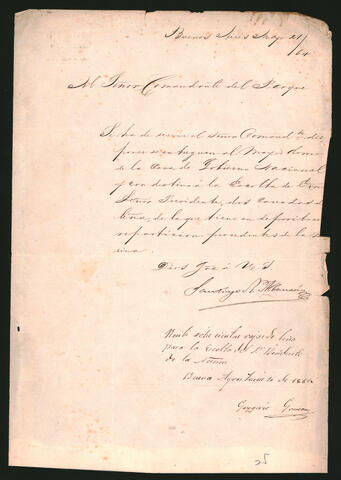 Buenos Aires Mayo 21/64
Al Señor Comandante del Parque
Se ha de servir el Señor Comand.te dis
poner se entreguen al Mayordomo
de la Casa de Gobierno Nacional
y con destino á la Escolta de
Señor Presidente, dos carradas
leña, de la que tiene en deposito
reparticion
Dios gue á V. S.
Santiago R. Albarracin
para la Escolta del Sr Presidente
de la
Buenos Ayres Junio 1o de 1864
Gregorio
25